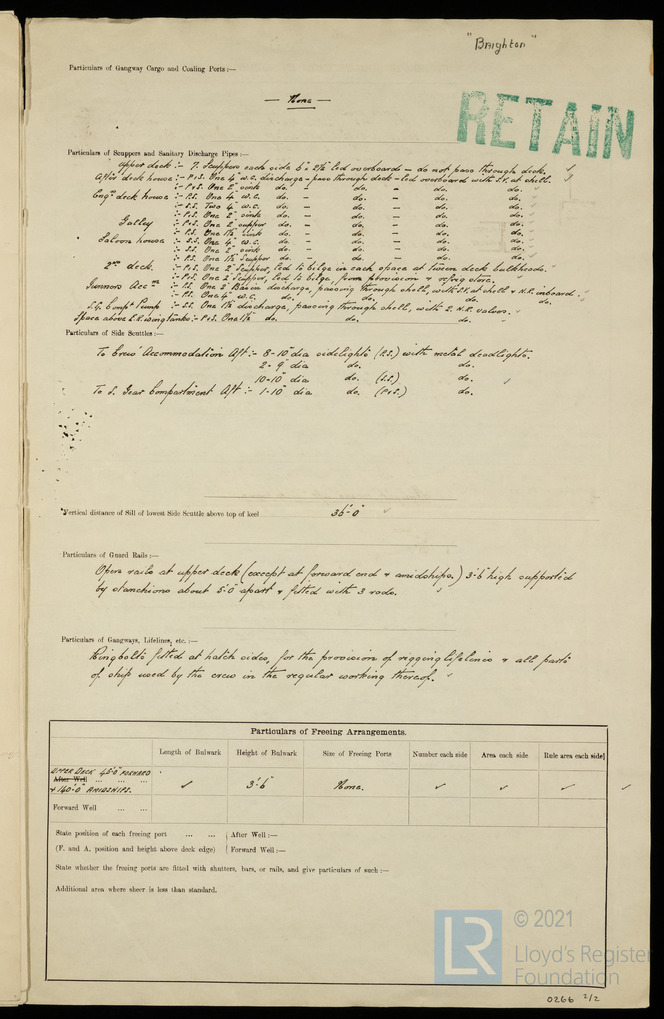 "Brighton"
Particulars of Gangway Cargo and Coaling Ports :—
— None —
RETAIN
Particulars of Scuppers and Sanitary Discharge Pipes :—
Upper deck :- 7. Scuppers each side 6" x 2½" led overboard - do not pass through deck.
After deck house :- P.&S. One 4" w.c. discharge - pass through deck - led overboard with S.V. at shell.
:- P.&S. One 2" sink do. - do. - do. do.
Eng.rs deck house :- P.S. One 4" w.c. do. - do. - do. do.
:- S.S. Two 4" w.c. do. - do. - do. do.
:- P.S. One 2" sink do. - do. - do. do.
Galley :- P.&S. One 2" scupper do. - do. - do. do.
:- P.S. One 1½" sink do. - do. - do. do.
Saloon house :- S.S. One 4" w.c. do. - do. - do. do.
:- S.S. One 2" sink do. - do. - do. do.
:- P.S. One 1½" Scupper do. - do. - do. do.
2nd deck. :- P.&S. One 2" Scupper, led to bilge in each space at tween deck bulkheads.
:- P.&S. One 2" Scupper, led to bilge, from provision & refrig store.
Gunners Acc.n :- P.S. One 2" Basin discharge, passing through shell, with S.V. at shell & N.R. inboard.
:- P.S. One 4" w.c. do. do. do. do.
S.G. Comp.t Pump :- S.S. One 1½" discharge, passing through shell, with 2. N.R. valves.
Space above E.R. wing tanks :- P.&S. One 1½" do. do. do.
Particulars of Side Scuttles :—
To Crew Accommodation Aft :- 8-10" dia sidelights (P.S.) with metal deadlights.
2-9" dia do. do.
10-10" dia do. (S.S.) do.
To S. Gear Compartment Aft :- 1-10" dia do. (P&S.) do.
Vertical distance of Sill of lowest Side Scuttle above top of keel 36'-0"
Particulars of Guard Rails :—
Open rails at upper deck (except at forward end & amidships.) 3'-6" high supported
by stanchions about 5'-0" apart & fitted with 3 rods.
Particulars of Gangways, Lifelines, etc. :—
Ringbolts fitted at hatch sides, for the provision of rigging lifelines & all parts
of ship used by the crew in the regular working thereof.
Particulars of Freeing Arrangements.
Length of Bulwark Height of Bulwark Size of Freeing Ports Number each side Area each side Rule area each side
UPPER DECK 45'-0" FORWARD
After Well ... ... ...
& 140'-0" AMIDSHIPS. ✓ 3'-6" None. ✓ ✓ ✓ ✓
Forward Well ... ...
State position of each freeing port ... ... After Well :—
(F. and A. position and height above deck edge) Forward Well :—
State whether the freeing ports are fitted with shutters, bars, or rails, and give particulars of such :—
Additional area where sheer is less than standard.
LR © 2021
Lloyd's Register
Foundation
0266 2/2